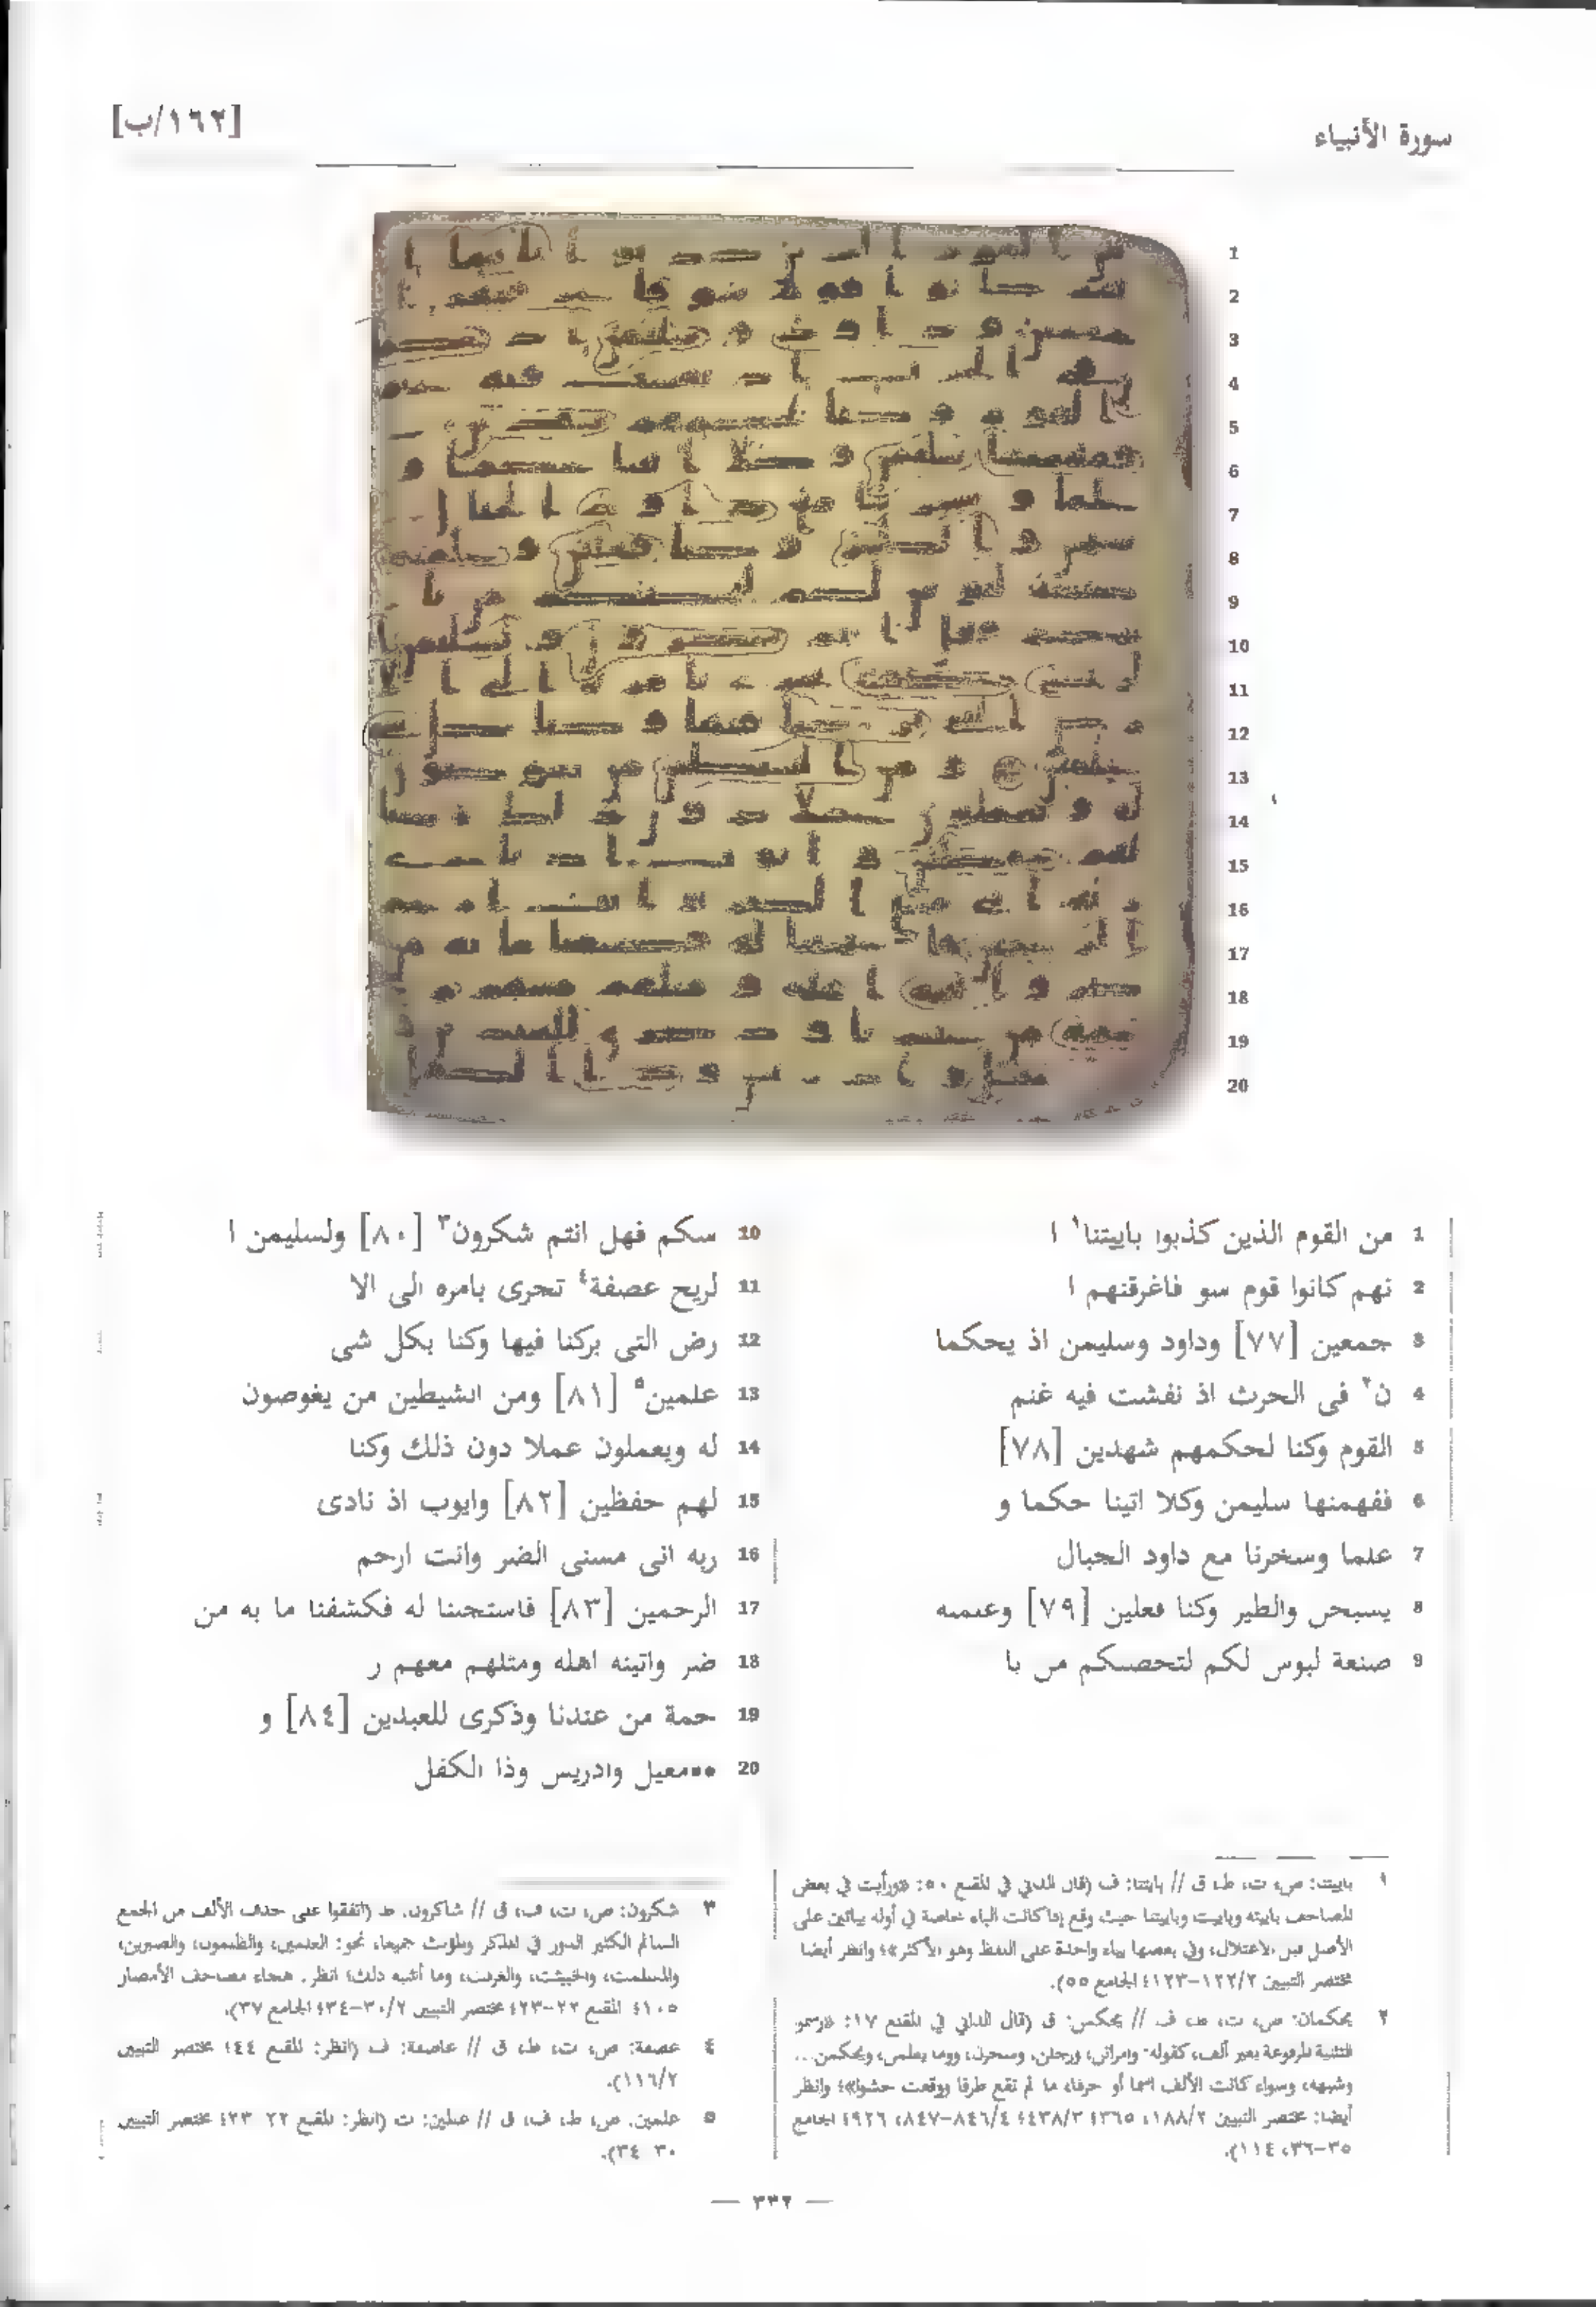 سورة الأنبياء
[١٦٢/ب]
1 من القوم الذين كذبوا باييتنا١ ا
2 نهم كانوا قوم سو فاغرقنهم ا
3 جمعين [٧٧] وداود وسليمن اذ يحكما
4 ن٢ فى الحرث اذ نفشت فيه غنم
5 القوم وكنا لحكمهم شهدين [٧٨]
6 ففهمنها سليمن وكلا اتينا حكما و
7 علما وسخرنا مع داود الجبال
8 يسبحن والطير وكنا فعلين [٧٩] وعلمنه
9 صنعة لبوس لكم لتحصنكم من با
10 سكم فهل انتم شكرون٣ [٨٠] ولسليمن ا
11 لريح عصفة٤ تجرى بامره الى الا
12 رض التى بركنا فيها وكنا بكل شى
13 علمين٥ [٨١] ومن الشيطين من يغوصون
14 له ويعملون عملا دون ذلك وكنا
15 لهم حفظين [٨٢] وايوب اذ نادى
16 ربه انى مسنى الضر وانت ارحم
17 الرحمين [٨٣] فاستجبنا له فكشفنا ما به من
18 ضر واتينه اهله ومثلهم معهم ر
19 حمة من عندنا وذكرى للعبدين [٨٤] و
20 ••معيل وادريس وذا الكفل
١ باييتنا: ص، ت، ط، ق // بايتنا: ف (قال الداني في المقنع ٥٠: «ورأيت في بعض
المصاحف باييته وباييت وباييتنا حيث وقع إذا كانت الباء خاصة في أوله بيائين على
الأصل قبل الاعتلال، وفي بعضها بياء واحدة على اللفظ وهو الأكثر»؛ وانظر أيضا
مختصر التبيين ١٢٢/٢-١٢٣؛ الجامع ٥٥).
٢ يحكمان: ص، ت، ط، ف // يحكمن: ق (قال الداني في المقنع ١٧: «ورسموا
التثنية المرفوعة بغير ألف، كقوله: وامراتن، ورجلن، وسحرن، وما يعلمن، ويحكمن...
وشبهه، وسواء كانت الألف اسما أو حرفا، ما لم تقع طرفا ووقعت حشوا»؛ وانظر
أيضا: مختصر التبيين ١٨٨/٢، ٣٦٥؛ ٤٣٨/٣؛ ٨٤٦/٤-٨٤٧، ٩٢٦؛ الجامع
٣٥-٣٦، ١١٤).
٣ شكرون: ص، ت، ف، ق // شاكرون: ط (اتفقوا على حذف الألف من الجمع
السالم الكثير الدور في المذكر والمؤنث جميعا، نحو: العلمين، والظلمون، والصبرين،
والمسلمت، والخبيثت، والغرفت، وما أشبه ذلك؛ انظر: هجاء مصاحف الأمصار
١٠٥؛ المقنع ٢٢-٢٣؛ مختصر التبيين ٣٠/٢-٣٤؛ الجامع ٣٧).
٤ عصفة: ص، ت، ط، ق // عاصفة: ف (انظر: المقنع ٤٤؛ مختصر التبيين
١١٦/٢).
٥ علمين: ص، ط، ف، ق // عملين: ت (انظر: المقنع ٢٢-٢٣؛ مختصر التبيين
٣٠-٣٤).
— ٣٣٢ —